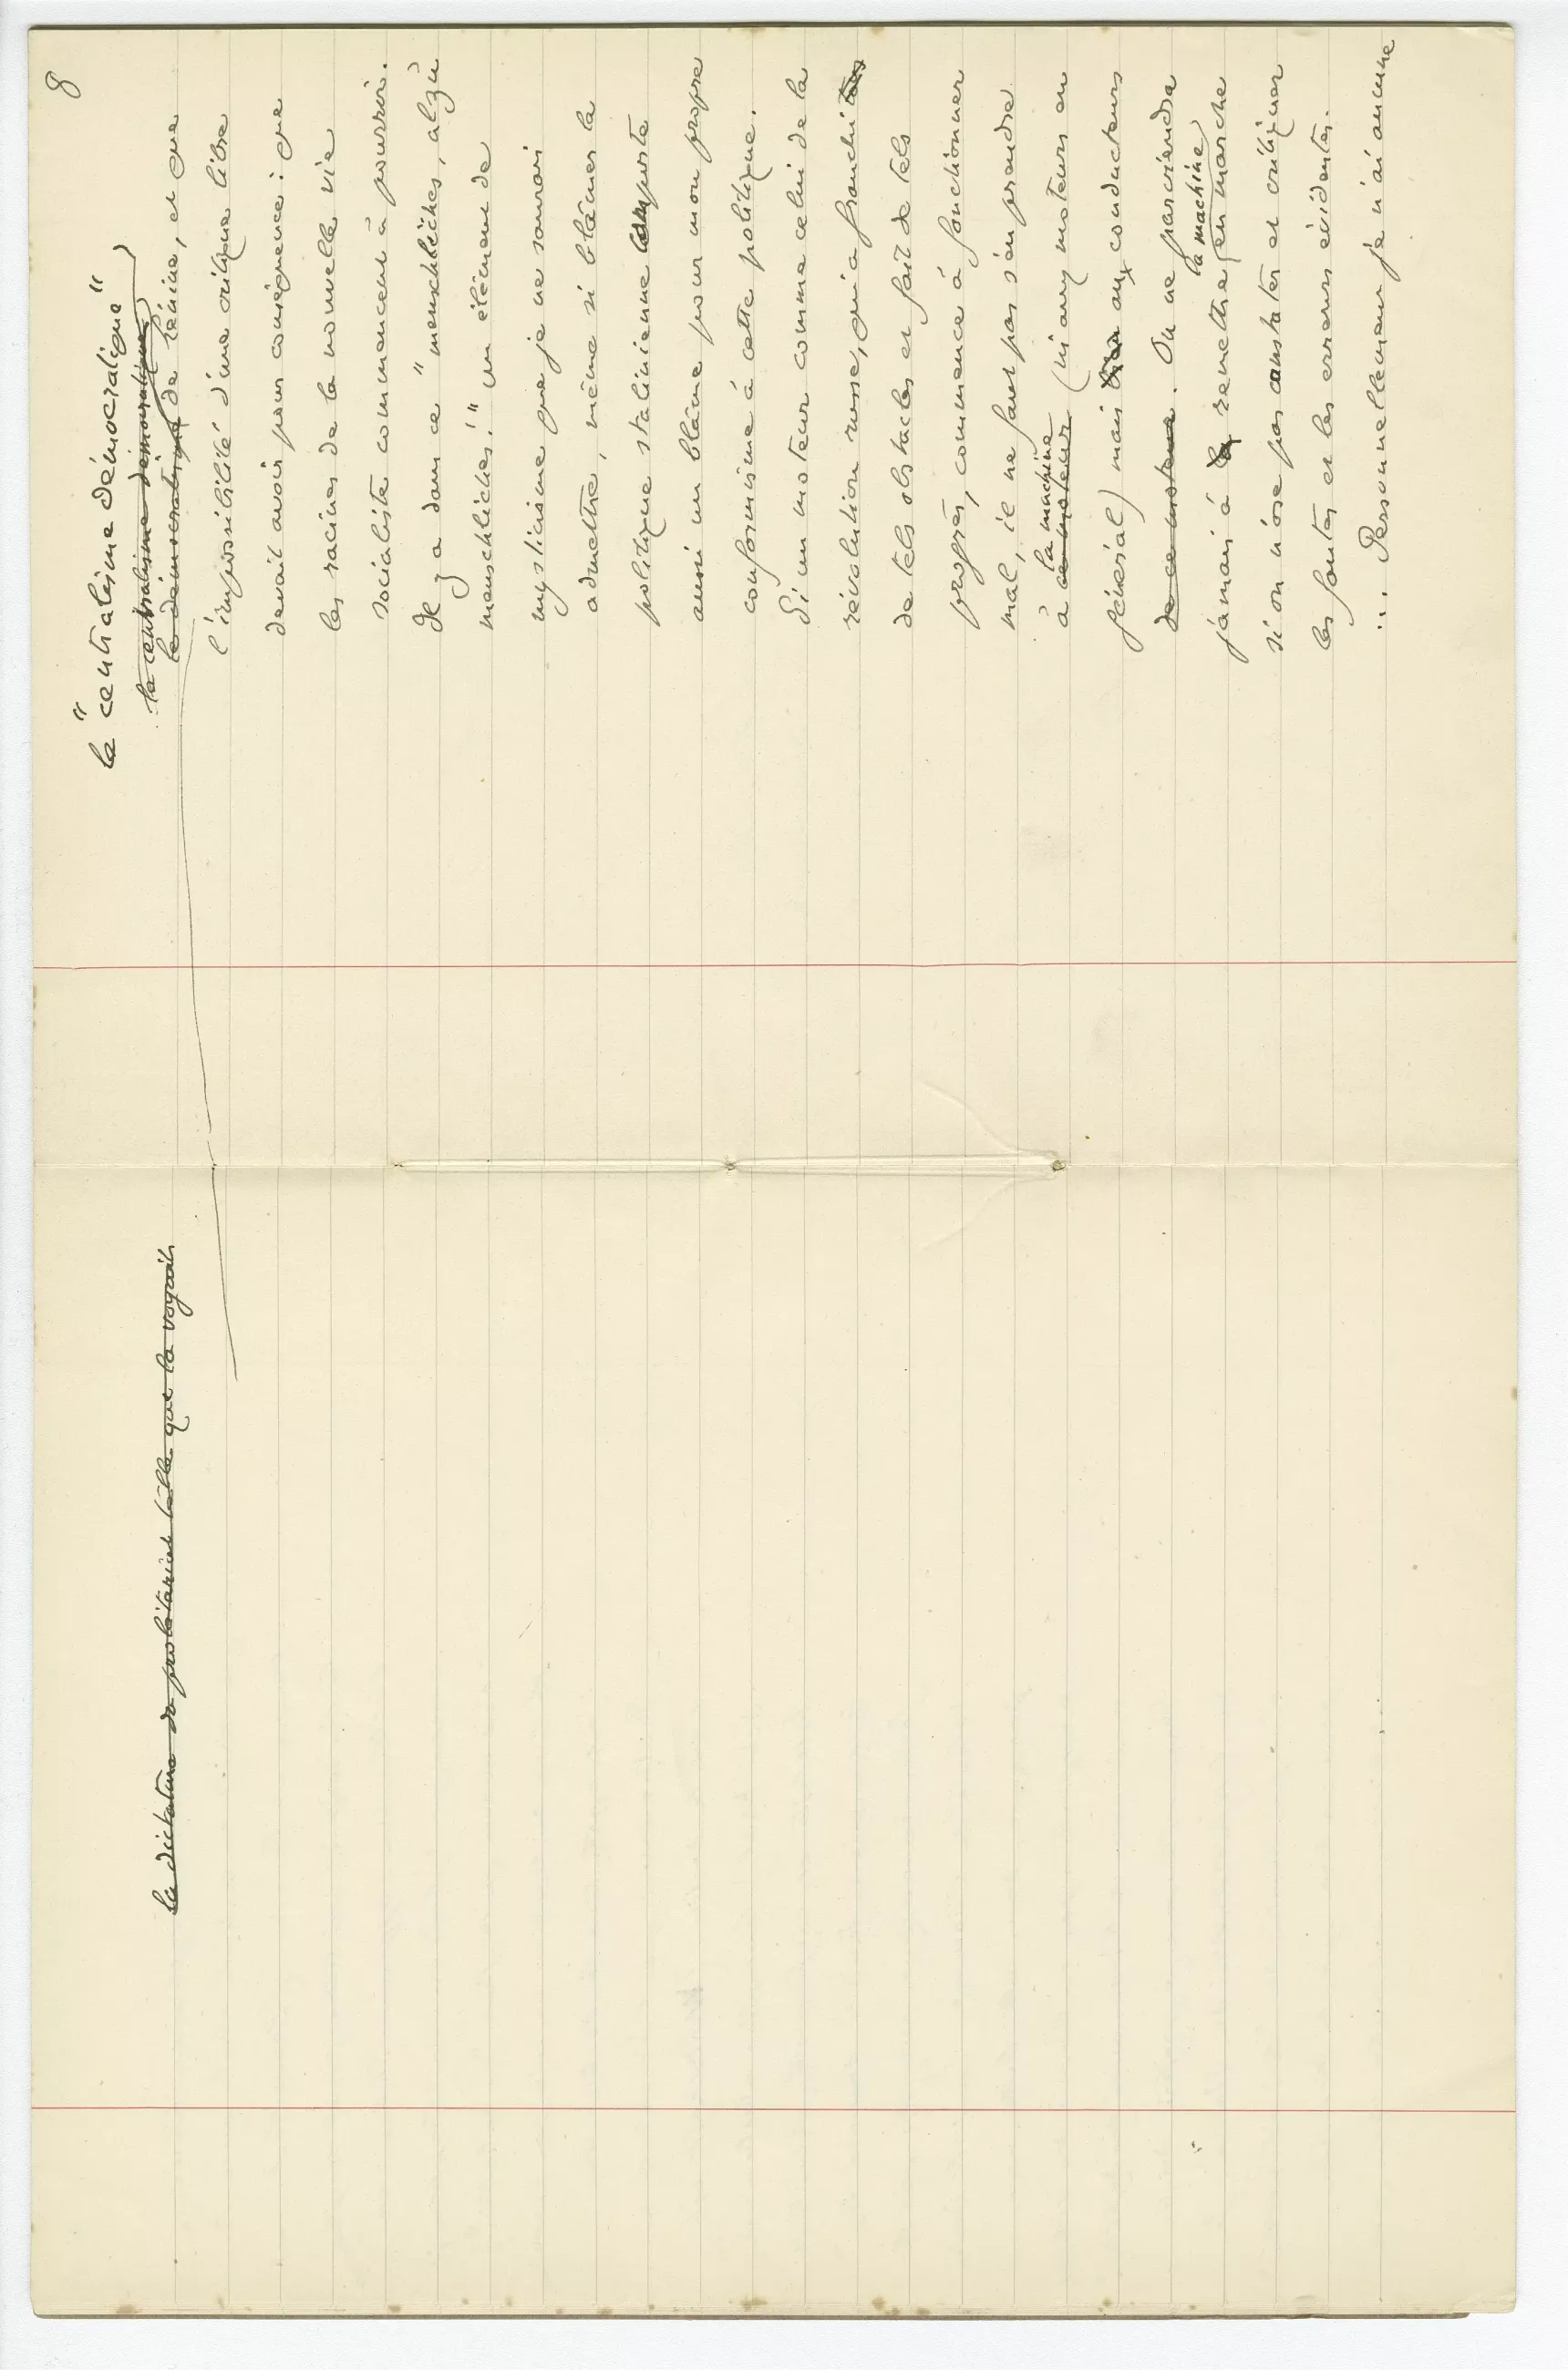 8
le "centralisme démocratique"
la centralisme démocratique
le démocratique de Lénine, et que
l'impossibilité d'une critique libre
devait avoir pour conséquence : que
les racines de la nouvelle vie
socialiste commencent à pourrir.
Il y a dans ce "menschliches, alzu
menschliches." un élément de
mysticisme que je ne saurai
admettre, même si blâmer la
politique stalinienne comporte
aussi un blâme pour mon propre
conformisme à cette politique.
Si un moteur comme celui de la
révolution russe, qui a franchi
de tels obstacles et fait de tels
progrès, commence à fonctionner
mal, il ne faut pas s'en prendre
à ce moteur la machine (ni aux moteurs en
général) mais aux conducteurs
de ce moteur. On ne parviendra
jamais à la remettre la machine en marche
si on n'ose pas constater et critiquer
les fautes et les erreurs évidentes.
... Personnellement je n'ai aucune
la dictature du prolétariat telle que la voyait